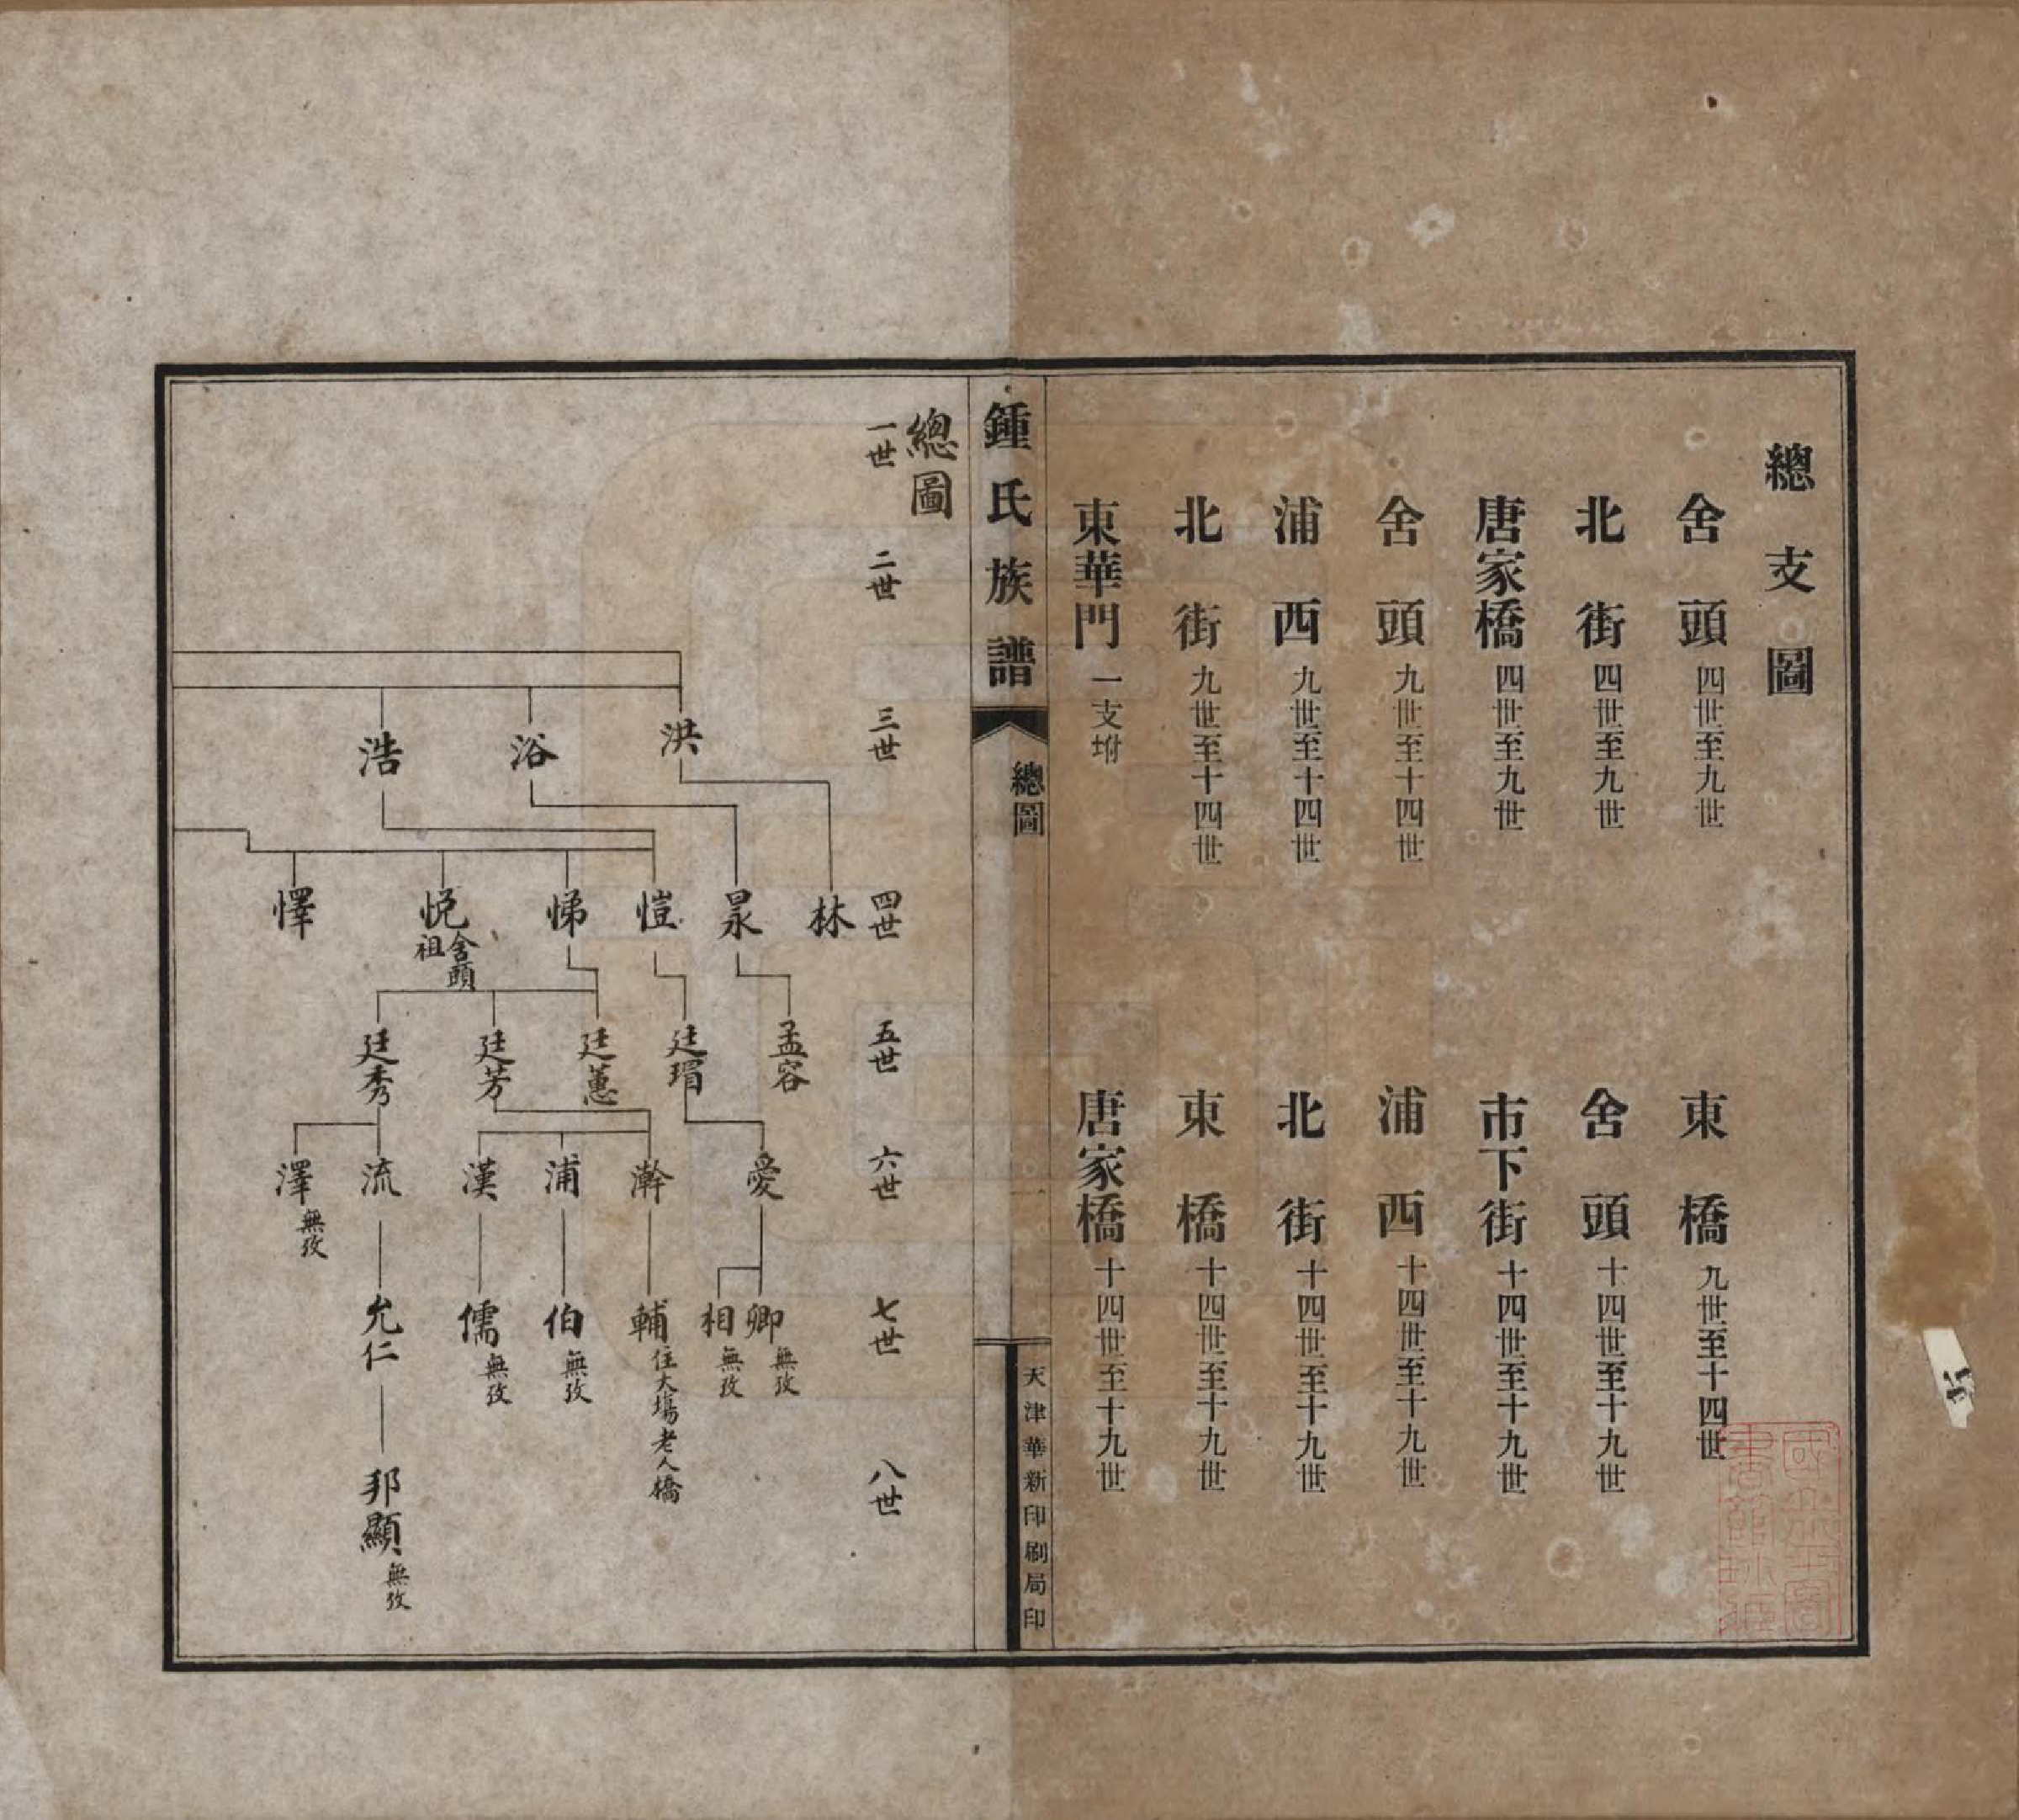 總支圖
舍頭四世至九世
東橋九世至十四世
北街四世至九世
舍頭十四世至十九世
唐家橋四世至九世
市下街十四世至十九世
舍頭九世至十四世
浦西十四世至十九世
浦西九世至十四世
北街十四世至十九世
北街九世至十四世
東橋十四世至十九世
東華門一支坿
唐家橋十四世至十九世
鍾氏族譜
總圖
一
天津華新印刷局印
總圖
一世
二世
三世
四世
五世
六世
七世
八世
洪
浴
浩
林
杲
愷
悌
悅舍頭祖
懌
孟容
廷瑁
廷蕙
廷芳
廷秀
愛
澣
浦
漢
流
澤無攷
卿無攷
相無攷
輔住大塲老人橋
伯無攷
儒無攷
允仁
邦顯無攷